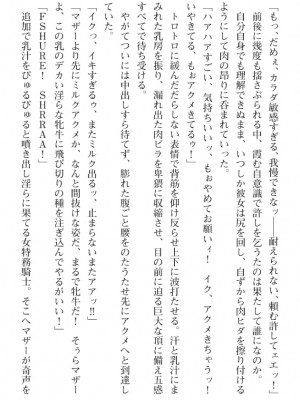 「もっ、だめぇ、カラダ敏感すぎる、我慢できなッ――耐えられない、頼む許してェエッ！」
前後に幾度も揺さぶられる中、霞む自意識で許しを乞うたのは果たして誰になのか。
自分自身でも理解できぬまま、いつしか彼女は尻を回し、自ずから肉ヒダを擦り付ける
ようにして肉の昂りに呑まれていった。
「ハアハアすごい、気持ちいいっ、もぉやめてお願いィ！　イク　アクメきちゃうッ！
やめてくる、もぉアクメきてるぅ！」
トロトロに緩んだだらしない表情で背筋を仰け反らせ上下に波打たせる。汗と乳汁にま
みれた乳房を振り、漏れ出た肉ビラを卑猥に収縮させ、目の前に迫る巨大な頂に備え五感
すべてで待ち受ける。
やがてついには中出しすら待てず、膨れた腹ごと腰をのたうたせ先にアクメへと到達し
ていた。
「イクっ、イキすぎるぅ、またミルク出るッ、止まらないまたアッ‼」
「マザーより先にミルクアクメか、なんと間抜けな姿だ、まるで牝牛だ！　そぅらマザー
よ、この乳のデカい淫らな牝牛に飛び切りの種を注ぎ込んでやるがいい！」
「FSHURE！　SHRRAA！」
追加で乳汁をぴゅるぴゅると噴き出し淫らに果てる女特務騎士。そこへマザーが奇声を